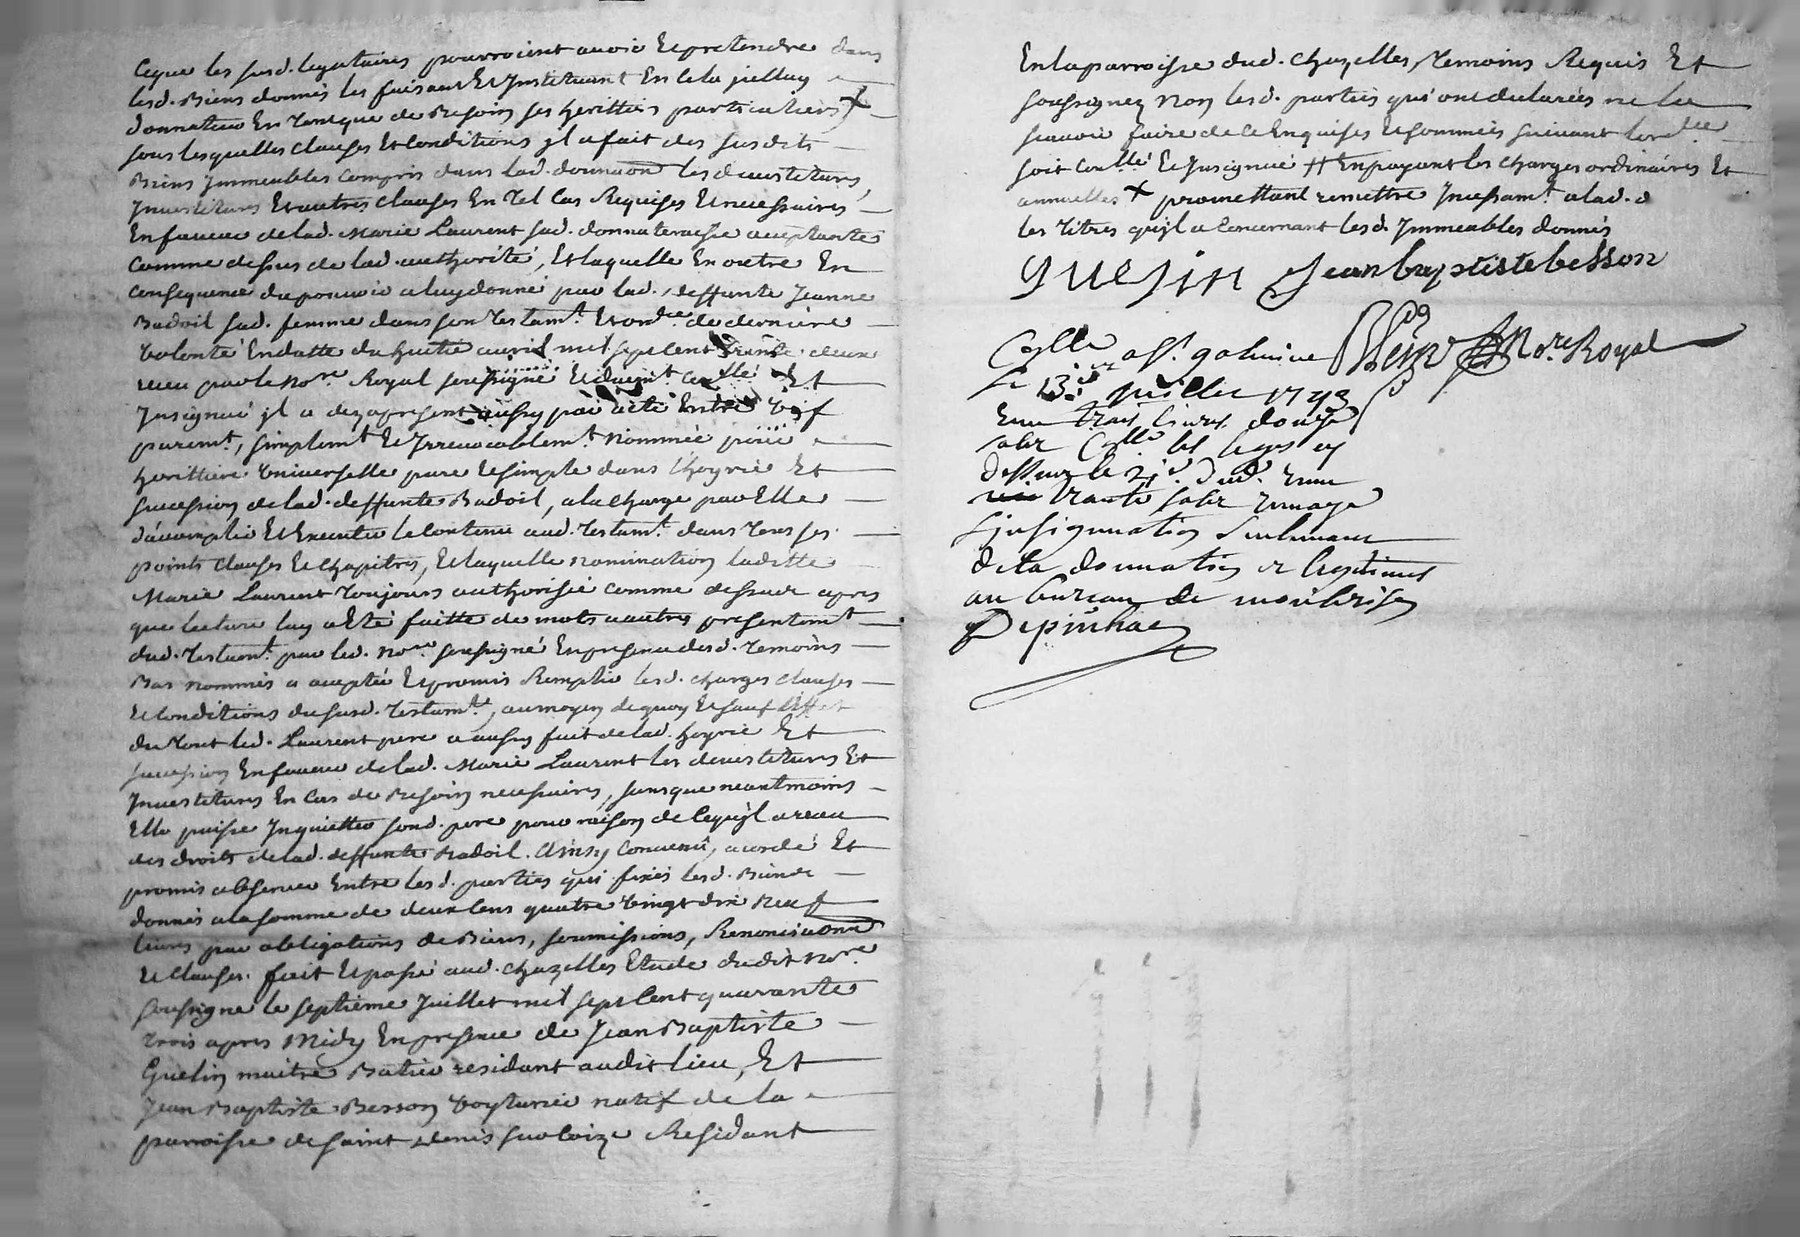 Ceque les susd. legataires pourroient avoir Et pretendre dans
lesd. Biens donnés les faisant Et Instituant En Cela jcelluy
donnateur En tant que de Besoin ses heritiers particuliers X
sous lesquelles Clauses Et Conditions jl a fait des susdits
Biens Jmmeubles Compris dans lad. donnaon les devestitures,
Jnvestitures Et autres clauses En tel Cas Requises Et necessaires
En faveur de lad. Marie Laurent sad. donnateresse aceptante
Comme dessus de lad. authorité, Et laquelle En outre En
Consequence du pouvoir a luy donné par lad. deffunte Jeanne
Badoil sad. femme dans son testamt. Et ordce. de derniere
volonté En datte du huitie avril mil sept Cent trente deux
receu par le Nore. Royal soussigné Et duemt. Conllé Et
Jnsignué jl a dezapresent aussy par acte Entre Vif
puremt., simplemt. Et Jrrevocablemt. nommée pour
herittiere Universelle pure Et simple dans l'hoyrie Et
succession de lad. deffunte Badoil, a la charge par Elle
d'acomplir Et Executer le Contenu aud. testamt. dans tous ses
points Clauses Et Chapitres, Et laquelle nomination ladite
Marie Laurent toujours authorisée comme dessus apres
que lecture luy a Eté faitte de mots a autres presentemt.
dud. testamt. par led. Nore. soussigné En presence desd. temoins
Bas nommés a aceptée Et promis Remplir lesd. charges clauses
Et Conditions du susd. testamt., au moyen de quoy Et sauf l'Effet
du tout led. Laurent pere a aussy fait de lad. hoyrie Et
succession En faveur de lad. Marie Laurent les devestitures Et
Jnvestitures En Cas de Besoin necessaires, sans que neantmoins
Elle puisse Jnquietter sond. pere pour raison de Cequ'jl a receu
des droits de lad. deffunte Badoil. Ainsy Convenû, acordé Et
promis observer Entre lesd. parties qui fixés lesd. Biens
donnés a la somme de deux Cens quatre Vingt dix Neuf
livres par obligations de Biens, soumissions, Renonciaons
Et Clauses. fait Et passé aud. Chazelles Etude dudit Nore.
soussigné le septiéme Juillet mil sept Cent quarante
trois apres Midy En presence de Jean Baptiste
Guelin maitre Batier residant audit lieu, Et
Jean Baptiste Besson Voyturier natif de la
parroisse de saint denis sur Coize Residant
En la parroisse dud. Chazelles, temoins Requis Et
soussignez Non lesd. parties qui ont declarées ne le
scavoir faire de Ce Enquises Et sommées suivant
soit Conllé Et Jnsignué # En payant les charges ordinaires Et
annuelles X promettant remettre Jncessamt. a lad. d
les titres qu'jl a Concernant lesd. Jmmeubles donnés
guelin Jean baptiste besson
Nore. Royal
Conllé a St. galmier
le 13e juillet 1743
Reçu trois livres douze
sols
trante sols
L'insignuation seulement
de la donnation
au bureau de monbrison
Depinhac